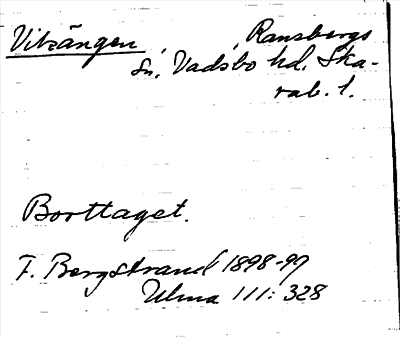 Vitängen, Ransbergs
Sn, Vadsbo hd. Ska-
rab. l.
Borttaget.
F. Bergstrand 1898-99
Ulma 111: 328